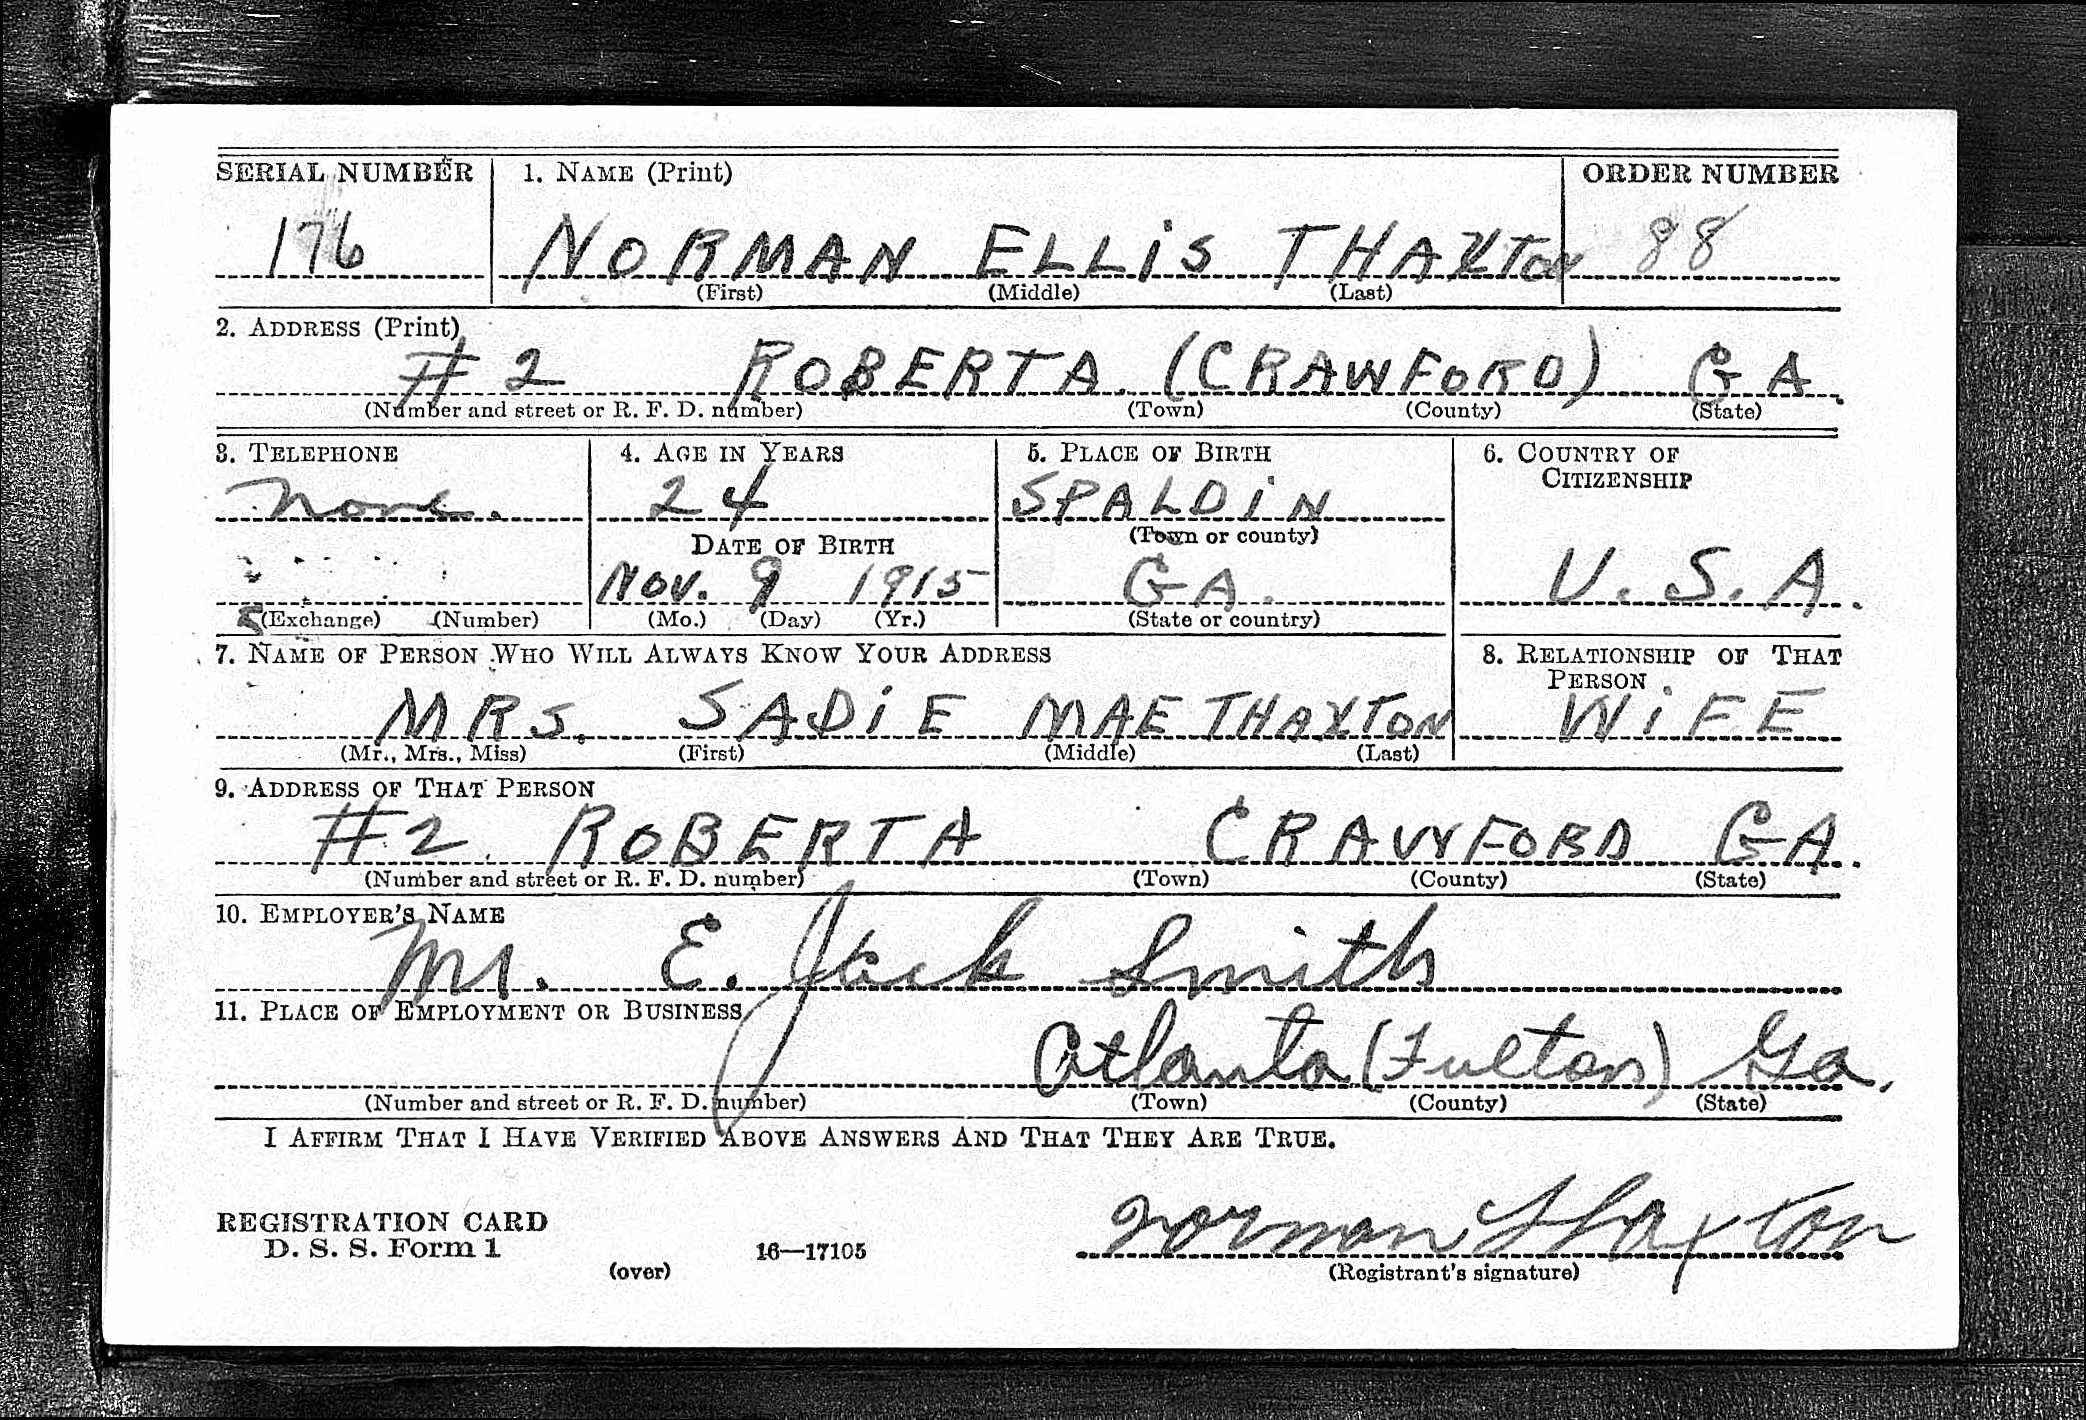 SERIAL NUMBER 1. NAME (Print) ORDER NUMBER
176 NORMAN ELLiS THAXTON 88
(First) (Middle) (Last)
2. ADDRESS (Print)
# 2 ROBERTA. (CRAWFORD) GA.
(Number and street or R. F. D. number) (Town) (County) (State)
3. TELEPHONE 4. AGE IN YEARS 5. PLACE OF BIRTH 6. COUNTRY OF
CITIZENSHIP
None. 24 SPALDiN
DATE OF BIRTH (Town or county)
NOV. 9 1915 GA. U.S.A.
(Exchange) (Number) (Mo.) (Day) (Yr.) (State or country)
7. NAME OF PERSON WHO WILL ALWAYS KNOW YOUR ADDRESS 8. RELATIONSHIP OF THAT
PERSON
MRS. SADiE MAE THAXTON WiFE
(Mr., Mrs., Miss) (First) (Middle) (Last)
9. ADDRESS OF THAT PERSON
#2 ROBERTA CRAWFORD GA.
(Number and street or R. F. D. number) (Town) (County) (State)
10. EMPLOYER'S NAME
Mr. E. Jack Smith
11. PLACE OF EMPLOYMENT OR BUSINESS
Atlanta (Fulton) Ga.
(Number and street or R. F. D. number) (Town) (County) (State)
I AFFIRM THAT I HAVE VERIFIED ABOVE ANSWERS AND THAT THEY ARE TRUE.
REGISTRATION CARD
D. S. S. Form 1 16—17105 Norman Thaxton
(over) (Registrant's signature)